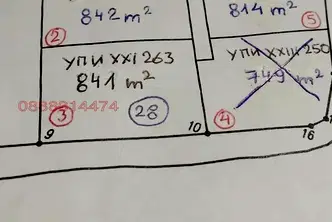 842 m²
814 m²
2
5
УПИ XXI 263
841 m²
УПИ XXIII 250
749 m²
0888814474
3
28
4
9
10
16